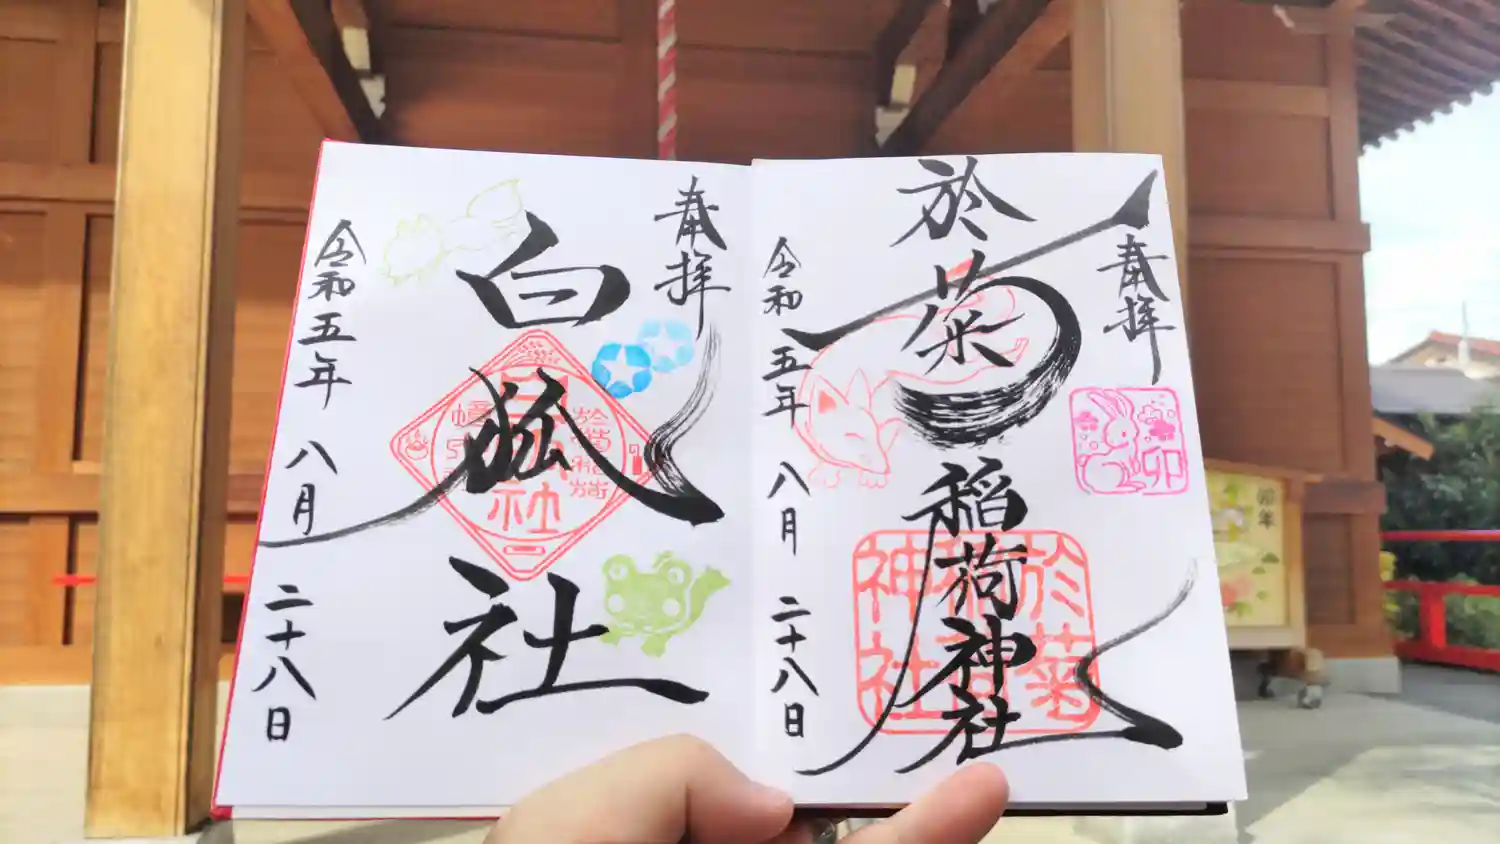 奉拝
於菊稲荷神社
令和五年 八月 二十八日
卯
於菊
稲荷
神社
奉拝
白狐社
令和五年 八月 二十八日
卯年